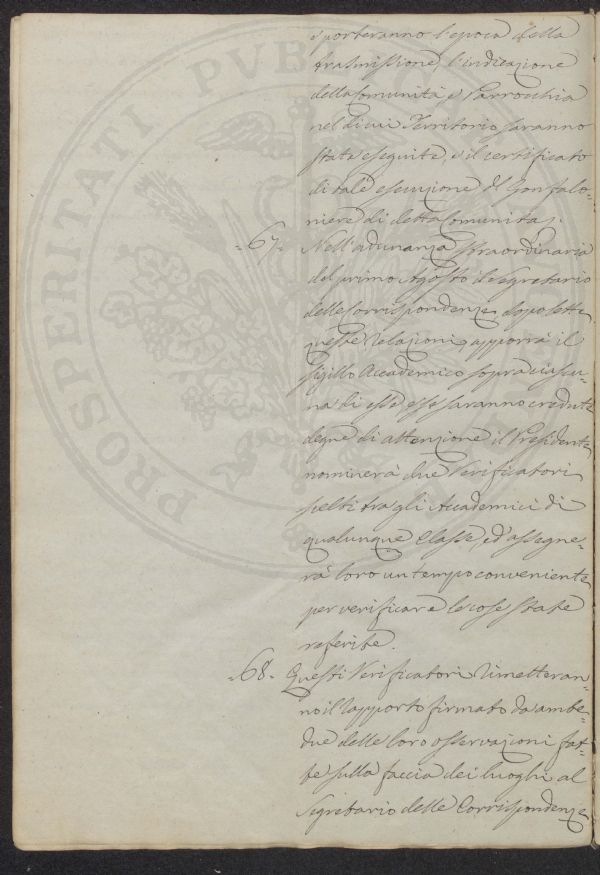 sporteranno l'epoca della
trasmissione, l'indicazione
della Comunità, e Parrocchia
nel di cui Territorio saranno
state eseguite, e il certificato
di tale esecuzione del Gonfalo-
niere di detta Comunità.
=67= Nell'adunanza straordinaria
del primo Agosto il Segretario
delle Corrispondenze, dopo lette
queste Relazioni, apporrà il
sigillo Accademico sopra ciascu-
na di esse, e se saranno credute
degne di attenzione il Presidente
nominerà due Verificatori
scelti tra gli Accademici di
qualunque Classe, ed assegne-
rà loro un tempo conveniente
per verificare le cose state
referite.
=68= Questi Verificatori rimetteran-
no il rapporto firmato da ambe-
due delle loro osservazioni fat-
te sulla faccia dei luoghi al
Segretario delle Corrispondenze
PROSPERITATI PUBLICAE